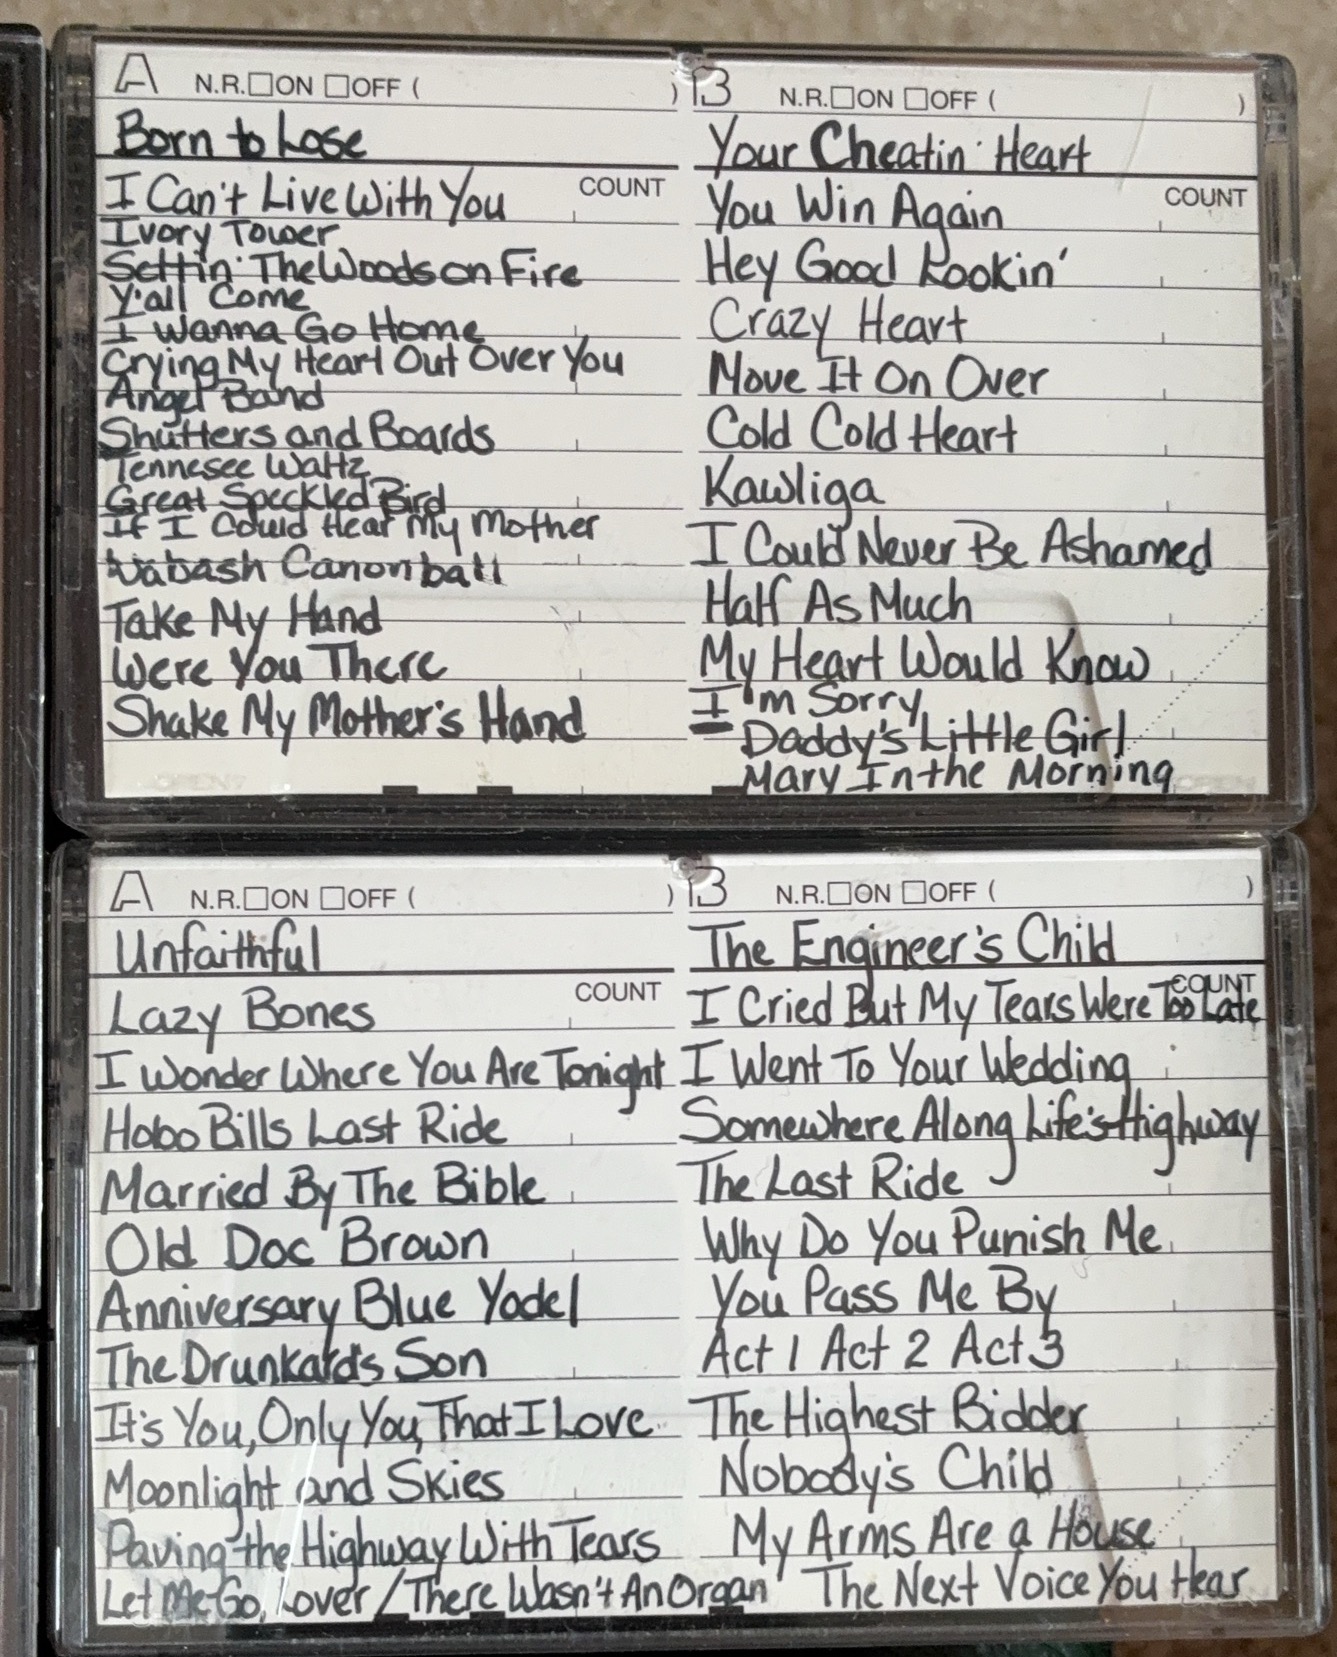 A N.R.□ON □OFF ( )
Born to Lose
COUNT
I Can't Live With You
Ivory Tower
Settin' The Woods on Fire
Y'all Come
I Wanna Go Home
Crying My Heart Out Over You
Angel Band
Shutters and Boards
Tennesee Waltz
Great Speckled Bird
If I Could Hear My Mother
Wabash Canonball
Take My Hand
Were You There
Shake My Mother's Hand
B N.R.□ON □OFF ( )
Your Cheatin' Heart
COUNT
You Win Again
Hey Good Lookin'
Crazy Heart
Move It On Over
Cold Cold Heart
Kawliga
I Could Never Be Ashamed
Half As Much
My Heart Would Know
I'm Sorry
Daddy's Little Girl
Mary In the Morning
A N.R.□ON □OFF ( )
Unfaithful
COUNT
Lazy Bones
I Wonder Where You Are Tonight
Hobo Bills Last Ride
Married By The Bible
Old Doc Brown
Anniversary Blue Yodel
The Drunkards Son
It's You, Only You, That I Love
Moonlight and Skies
Paving the Highway With Tears
Let Me Go, Lover / There Wasn't An Organ
B N.R.□ON □OFF ( )
The Engineer's Child
COUNT
I Cried But My Tears Were Too Late
I Went To Your Wedding
Somewhere Along Life's Highway
The Last Ride
Why Do You Punish Me
You Pass Me By
Act 1 Act 2 Act 3
The Highest Bidder
Nobody's Child
My Arms Are a House
The Next Voice You Hear